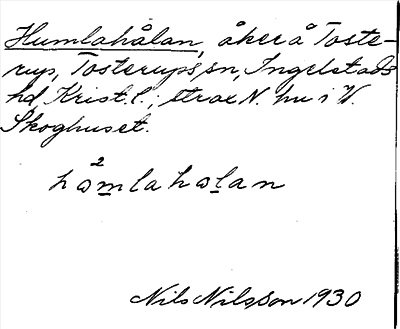 Humlahålan, åker å Toste-
rup, Tosterups sn, Ingelstads
hd, Krist. l.; strax N. hu i V.
Skoghuset.
hømlahalan
Nils Nilsson 1930